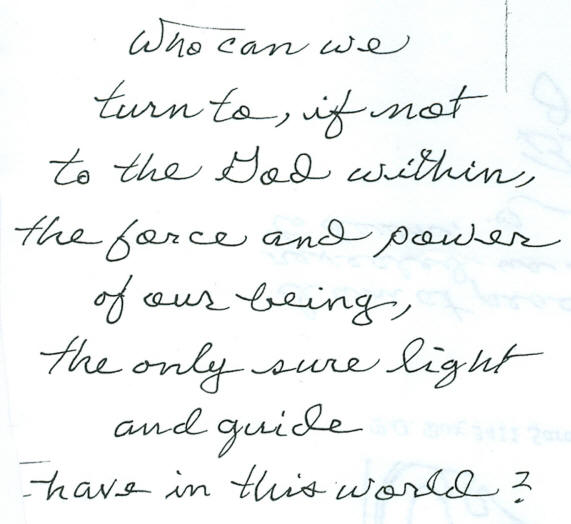 Who can we
turn to, if not
to the God within,
the force and power
of our being,
the only sure light
and guide
have in this world?